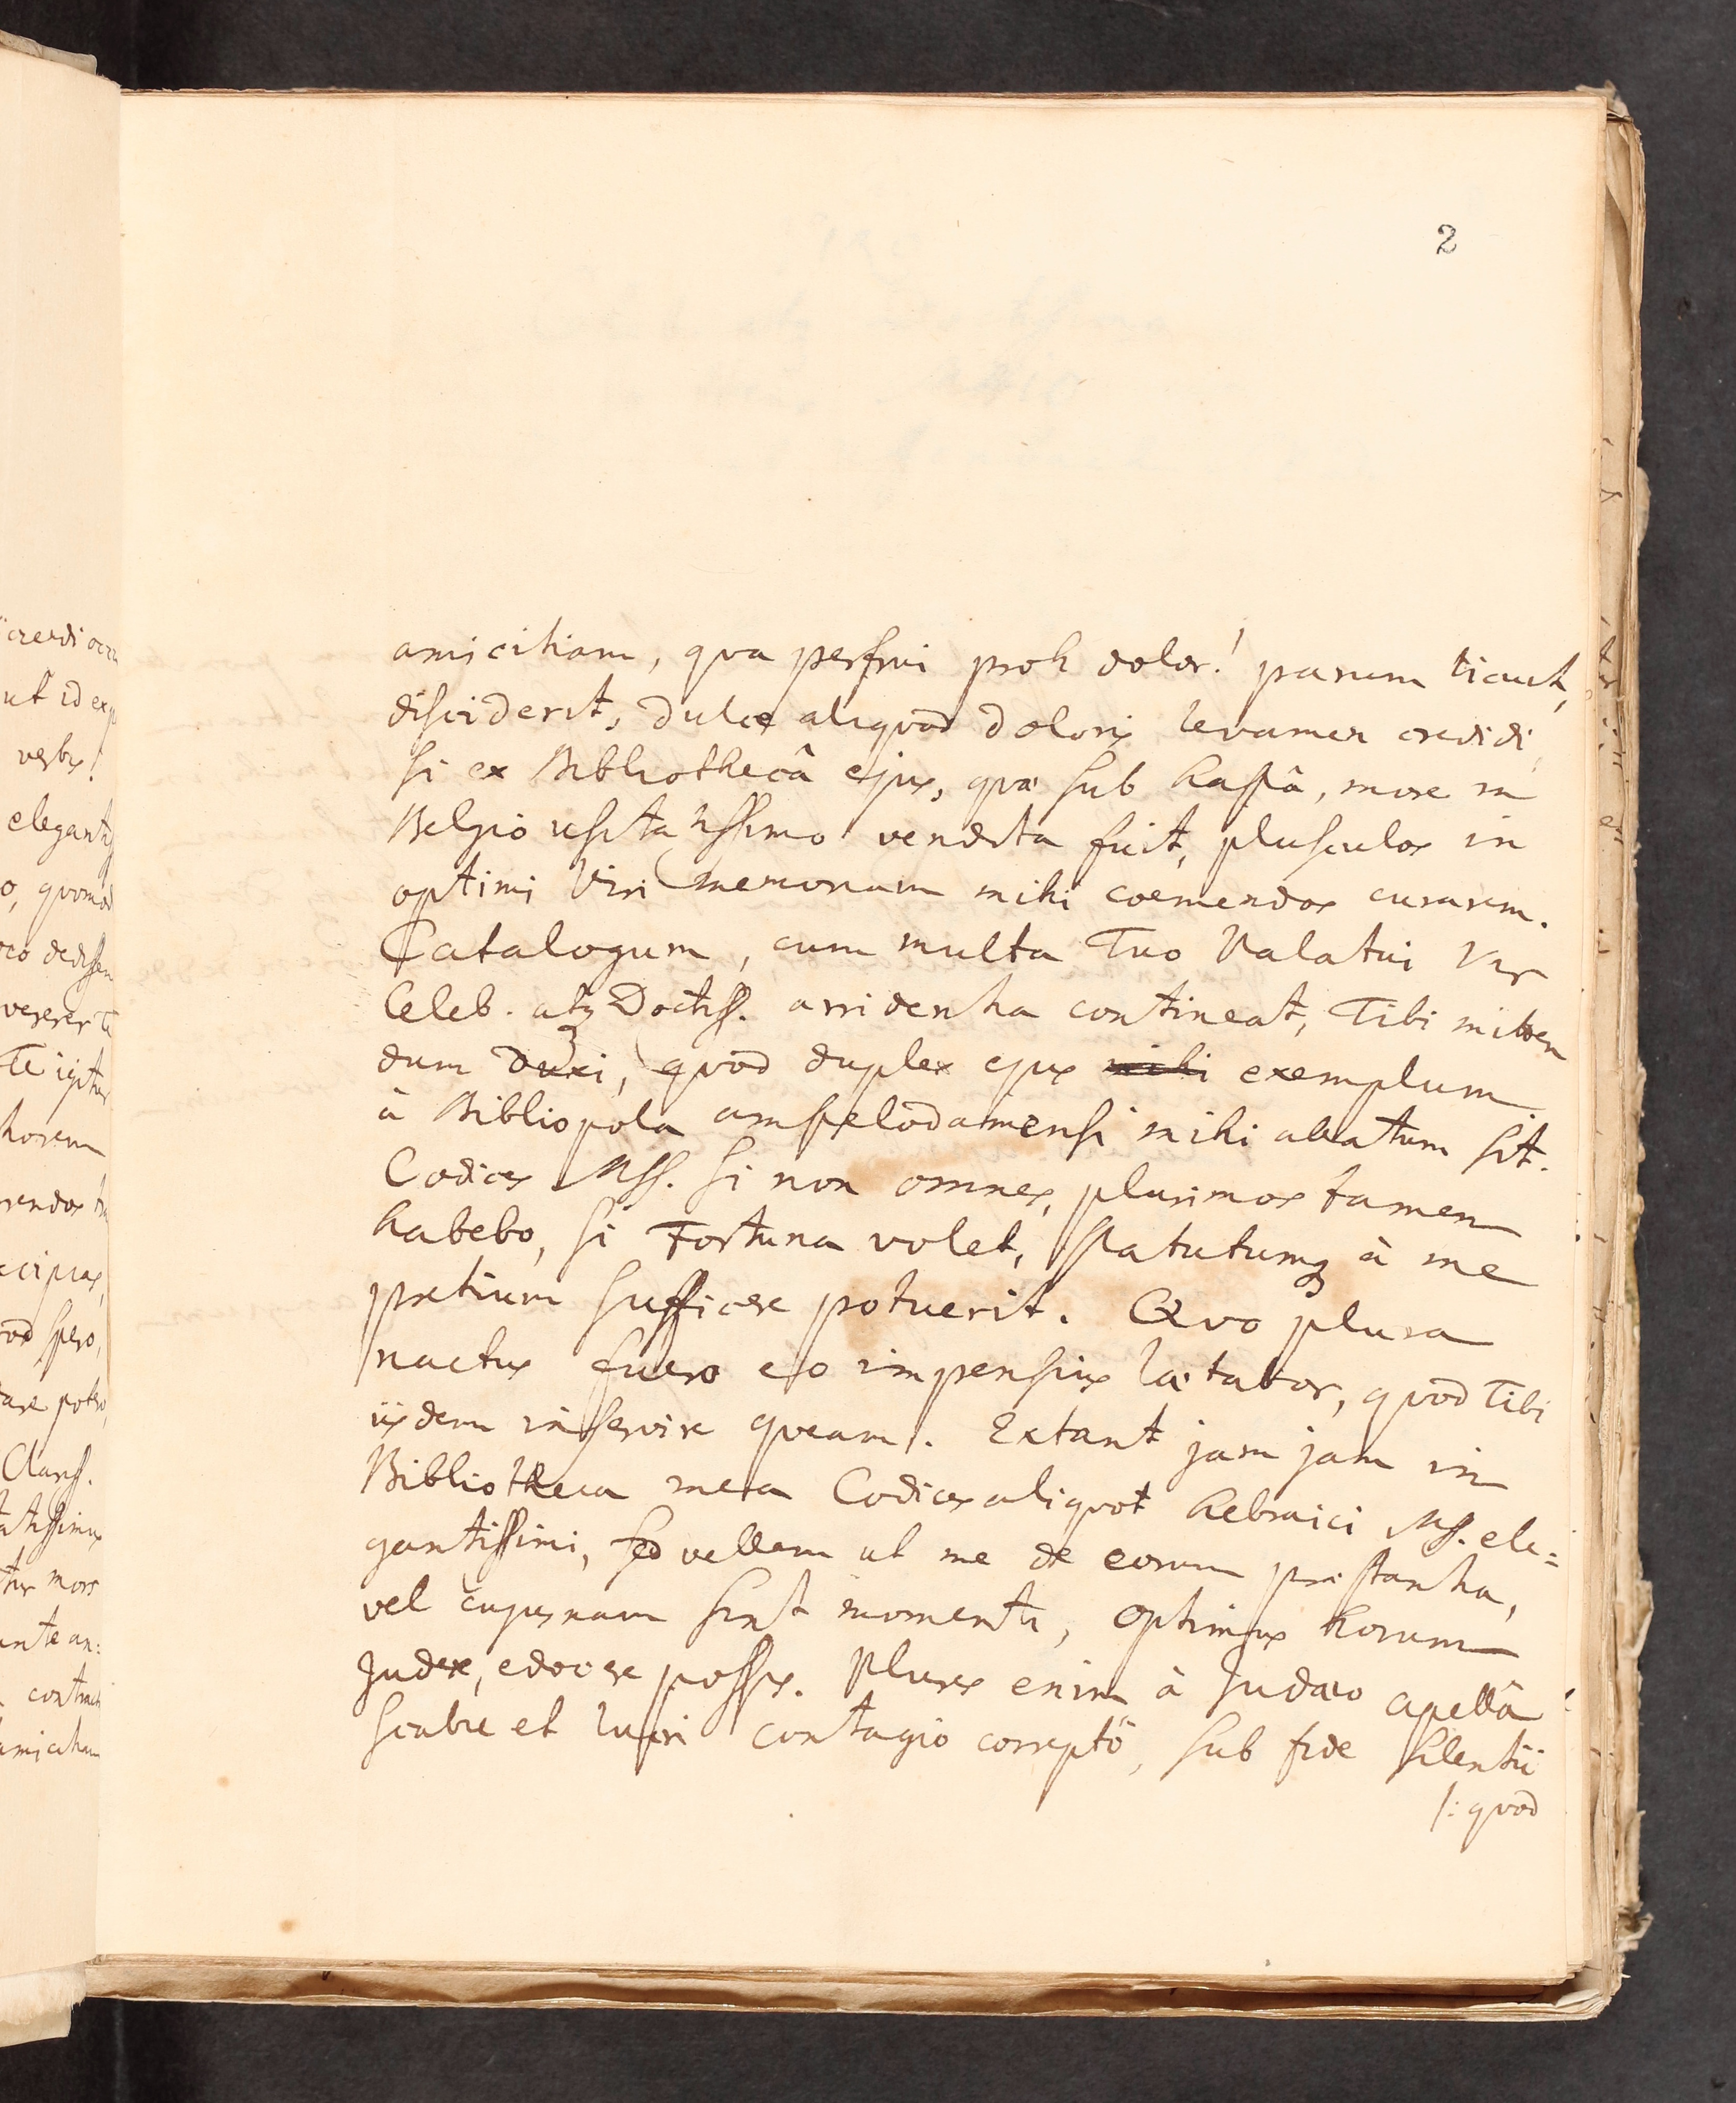 2
amicitiam, qva perfrui proh dolor! parum licuit,
disciderit, dulce aliqvod doloris levamen credidi,
si ex Bibliothecâ ejus, qvæ sub hastâ, more in
Belgio usitatissimo vendita fuit, plusculos in
optimi Viri memoriam mihi coemendos curarem.
Catalogum, cum multa Tuo Palatui Vir
Celeb. atq Doctiss. arridentia contineat, Tibi mitten
dum duxi, qvod duplex ejus mihi exemplum
à Bibliopola amstelodamensi mihi allatum sit.
Codices Mss. si non omnes, plurimos tamen
habebo, si Fortuna volet, statutumq à me
pretium sufficere potuerit. Qvo plura
nactus fuero eo impensius lætabor, qvod Tibi
iisdem inservire qveam. Extant jam jam in
Bibliotheca mea Codices aliqvot hebraici Mss. ele=
gantissimi, sed vellem ut me de eorum præstantia,
vel cujusnam sint momenti, optimus horum
Judex, edocere posses. Plures enim à Judæo apellâ
scabie et lucri contagio correptô, sub fide silentii
/: qvod